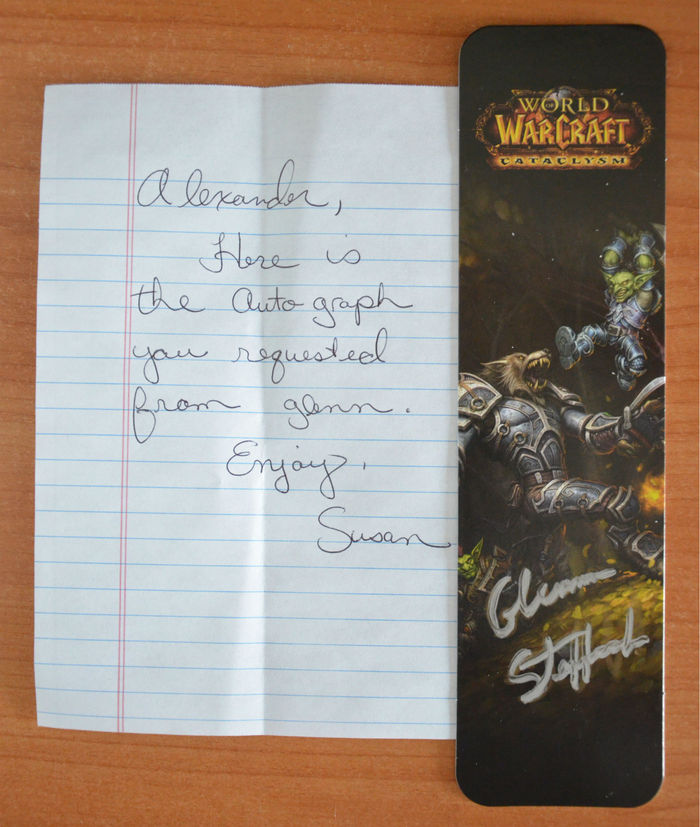 Alexander,
Here is
the Autograph
you requested
from glenn.
Enjoy,
Susan
WORLD
OF
WARCRAFT
CATACLYSM
Glenn